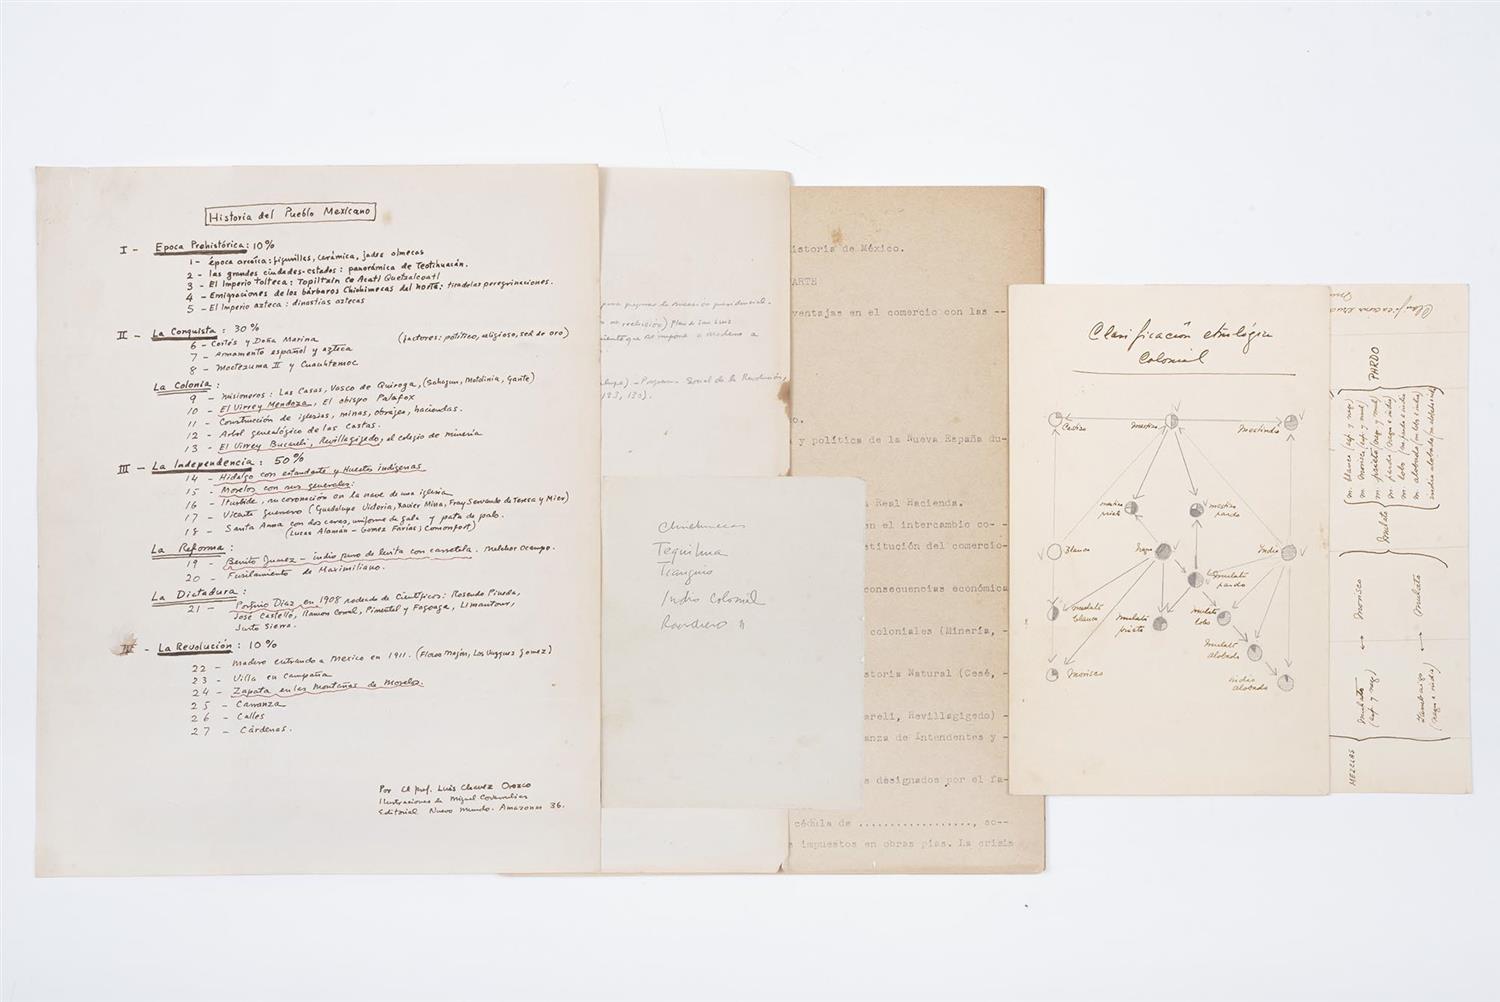 Historia del Pueblo Mexicano
I - Epoca Prehistórica: 10%
1 - época arcaica: figurillas, cerámica, jades olmecas
2 - las grandes ciudades-estados: panorámica de Teotihuacán.
3 - El Imperio tolteca: Topiltzin Ce Acatl Quetzalcoatl
4 - Emigraciones de los bárbaros Chichimecas del norte: tira de las peregrinaciones.
5 - El Imperio azteca: dinastías aztecas
II - La Conquista: 30%
6 - Cortés y Doña Marina (factores: político, religioso, sed de oro)
7 - Armamento español y azteca
8 - Moctezuma II y Cuauhtemoc
La Colonia:
9 - misioneros: Las Casas, Vasco de Quiroga, (Sahagun, Motolinia, Gante)
10 - El Virrey Mendoza, El obispo Palafox
11 - Construcción de iglesias, minas, obrajes, haciendas.
12 - Arbol genealógico de las castas.
13 - El Virrey Bucareli, Revillagigedo, el colegio de minería
III - La Independencia: 50%
14 - Hidalgo con estandarte y Huestes indígenas
15 - Morelos con sus generales:
16 - Iturbide, su coronación en la nave de una iglesia
17 - Vicente Guerrero (Guadalupe Victoria, Xavier Mina, Fray Servando de Teresa y Mier)
18 - Santa Anna con dos caras, uniforme de gala y pata de palo.
(Lucas Alamán - Gomez Farías; Comonfort)
La Reforma:
19 - Benito Juarez - indio puro de levita con carretela. Melchor Ocampo.
20 - Fusilamiento de Maximiliano.
La Dictadura:
21 - Porfirio Diaz en 1908 rodeado de Científicos: Rosendo Pineda,
José Castelló, Ramon Corral, Pimentel y Fagoaga, Limantour,
Justo Sierra.
IV - La Revolución: 10%
22 - Madero entrando a Mexico en 1911. (Flores Magón, Los Vazquez Gomez)
23 - Villa en campaña
24 - Zapata en las Montañas de Morelos.
25 - Carranza
26 - Calles
27 - Cárdenas.
Por el prof. Luis Chavez Orozco
Ilustraciones de Miguel Covarrubias
Editorial Nuevo Mundo. Amazonas 36.
para preparar la sucesión presidencial.
no reelección) Plan de San Luis
que se impone a Madero a
- Programa Social de la Revolución,
123, 130).
Chichimecas
Tequihua
Tianguis
Indio Colonial
Ranchero "
istoria de México.
ARTE
ventajas en el comercio con las --
o.
y política de la Nueva España du-
Real Hacienda.
en el intercambio co--
stitución del comercio-
consecuencias económica
coloniales (Minería, -
storia Natural (Cesé, -
areli, Revillagigedo) -
anza de Intendentes y -
s designados por el fa-
cédula de ................., so--
s impuestos en obras pías. La crisis
Clasificación etnológica
Colonial
Castizo
mestizo
mestindio
mestizo
prieto
mestizo
pardo
Blanco
Negro
Indio
mulato
pardo
mulato
blanco
mulato
prieto
mulato
lobo
mulato
alobado
indio
alobado
morisco
PARDO
m. blanco (esp. y negr.)
m. morisco (esp. y mul.)
m. prieto (neg. y mul.)
m. pardo (negro e indio)
m. lobo (m. pardo e indio)
m. alobado (m. lobo e indio)
indio alobado (m. alobado e indio)
Mulato
Morisco
Mulato
Mulato
(esp. y negr.)
Zambaigo
(negro e indio)
MEZCLAS